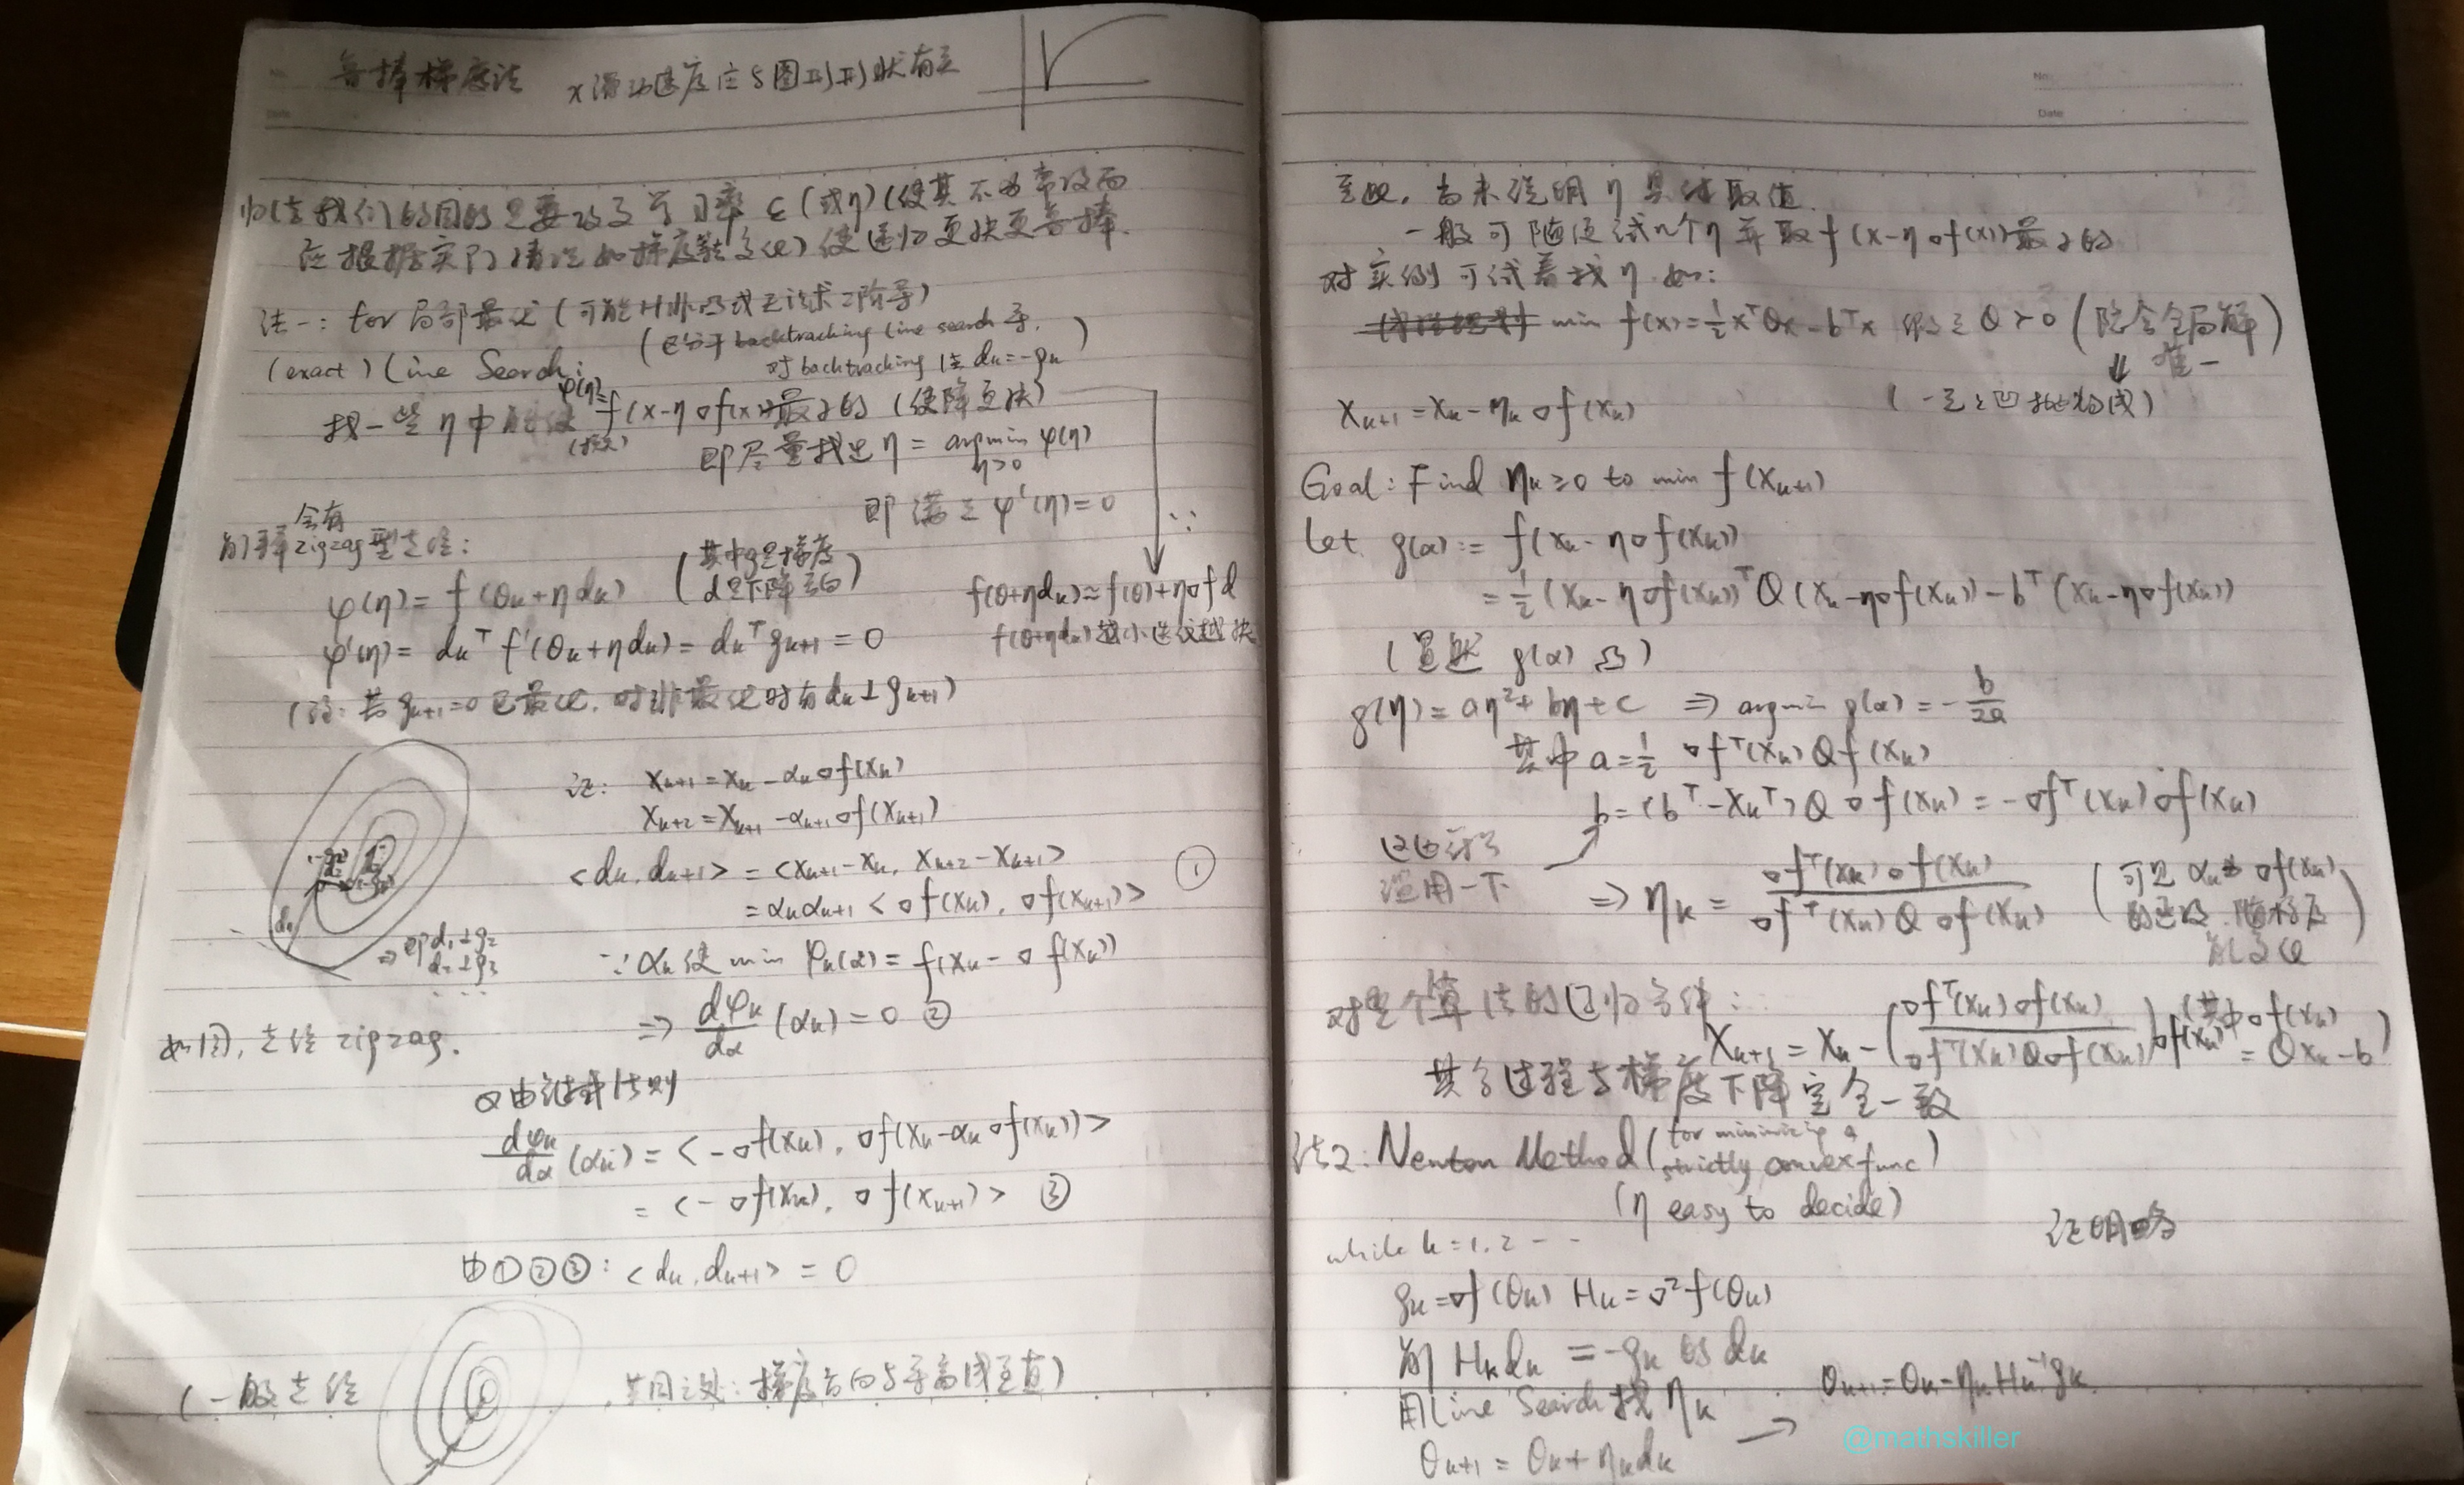 鲁棒梯度法 x滑动速度应与图形形状有关
归结我们的目的是要改变学习率 ε(或η)(使其不为常设而
应根据实际情况如梯度等变化)使递归更快更鲁棒.
法一: for 局部最优(可能H非凸或无法求二阶导)
(exact) Line Search: (区分于 backtracking line search 等.
对 backtracking 法 dₖ=-gₖ)
找一些η中能使 φ(η)= f(x-η∇f(x))最小的 (使降更快)
即尽量找出 η = argmin φ(η)
η>0
即满足 φ'(η)=0
会有
解释 zigzag 型走径:
(其中g是梯度
d是下降方向)
φ(η)= f(θₖ+ηdₖ)
f(θ+ηdₖ)≈f(θ)+η∇f d
φ'(η)= dₖᵀ f'(θₖ+ηdₖ)= dₖᵀ gₖ₊₁ = 0
f(θ+ηdₖ)越小迭代越快
(注: 若gₖ₊₁=0已最优, 对非最优时有dₖ⊥gₖ₊₁)
证: xₖ₊₁=xₖ-αₖ∇f(xₖ)
xₖ₊₂=xₖ₊₁-αₖ₊₁∇f(xₖ₊₁)
<dₖ,dₖ₊₁> = <xₖ₊₁-xₖ, xₖ₊₂-xₖ₊₁> ①
=αₖαₖ₊₁ <∇f(xₖ), ∇f(xₖ₊₁)>
d₁
⇒即d₁⊥g₂
d₂⊥g₃
∵αₖ使 min φₖ(α)= f(xₖ-∇f(xₖ))
⇒ dφₖ/dα (αₖ)=0 ②
如图, 走径 zigzag.
又由链式法则
dφₖ/dα (αₖ)= <-∇f(xₖ), ∇f(xₖ-αₖ∇f(xₖ))>
= <-∇f(xₖ), ∇f(xₖ₊₁)> ③
由①②③: <dₖ,dₖ₊₁> = 0
(一般走径 , 共同之处: 梯度方向与等高线垂直)
至此, 尚未说明η具体取值.
一般可随便试n个η并取f(x-η∇f(x))最小的
对实例可试着找η 如:
min f(x)=½xᵀQx-bᵀx 假定Q>0 (隐含全局解
⇓ 唯一)
xₖ₊₁=xₖ-ηₖ∇f(xₖ)
Goal: Find ηₖ≥0 to min f(xₖ₊₁)
Let g(α):= f(xₖ-η∇f(xₖ))
=½(xₖ-η∇f(xₖ))ᵀQ(xₖ-η∇f(xₖ))-bᵀ(xₖ-η∇f(xₖ))
(显然 g(α) 凸)
g(η)=aη²+bη+c ⇒ argmin g(α)=-b/2a
其中a=½ ∇fᵀ(xₖ)Qf(xₖ)
b=(bᵀ-xₖᵀ)Q∇f(xₖ)=-∇fᵀ(xₖ)∇f(xₖ)
运用一下
⇒ηₖ= ∇fᵀ(xₖ)∇f(xₖ) / ∇fᵀ(xₖ)Q∇f(xₖ) (可见 αₖ ∇f(xₖ)
随梯度
而变化)
对整个算法的回归条件:
xₖ₊₁=xₖ-(∇fᵀ(xₖ)∇f(xₖ) / ∇fᵀ(xₖ)Q∇f(xₖ))∇f(xₖ) (其中∇f(xₖ)
=Qxₖ-b)
其余过程与梯度下降完全一致
法2: Newton Method (for minimizing a
strictly convex func)
(η easy to decide)
证明略
while k=1,2 - -
gₖ=∇f(θₖ) Hₖ=∇²f(θₖ)
解 Hₖdₖ =-gₖ 的dₖ
用Line Search找ηₖ
θₖ₊₁=θₖ+ηₖdₖ → θₖ₊₁=θₖ-ηₖHₖ⁻¹gₖ
@mathskiller